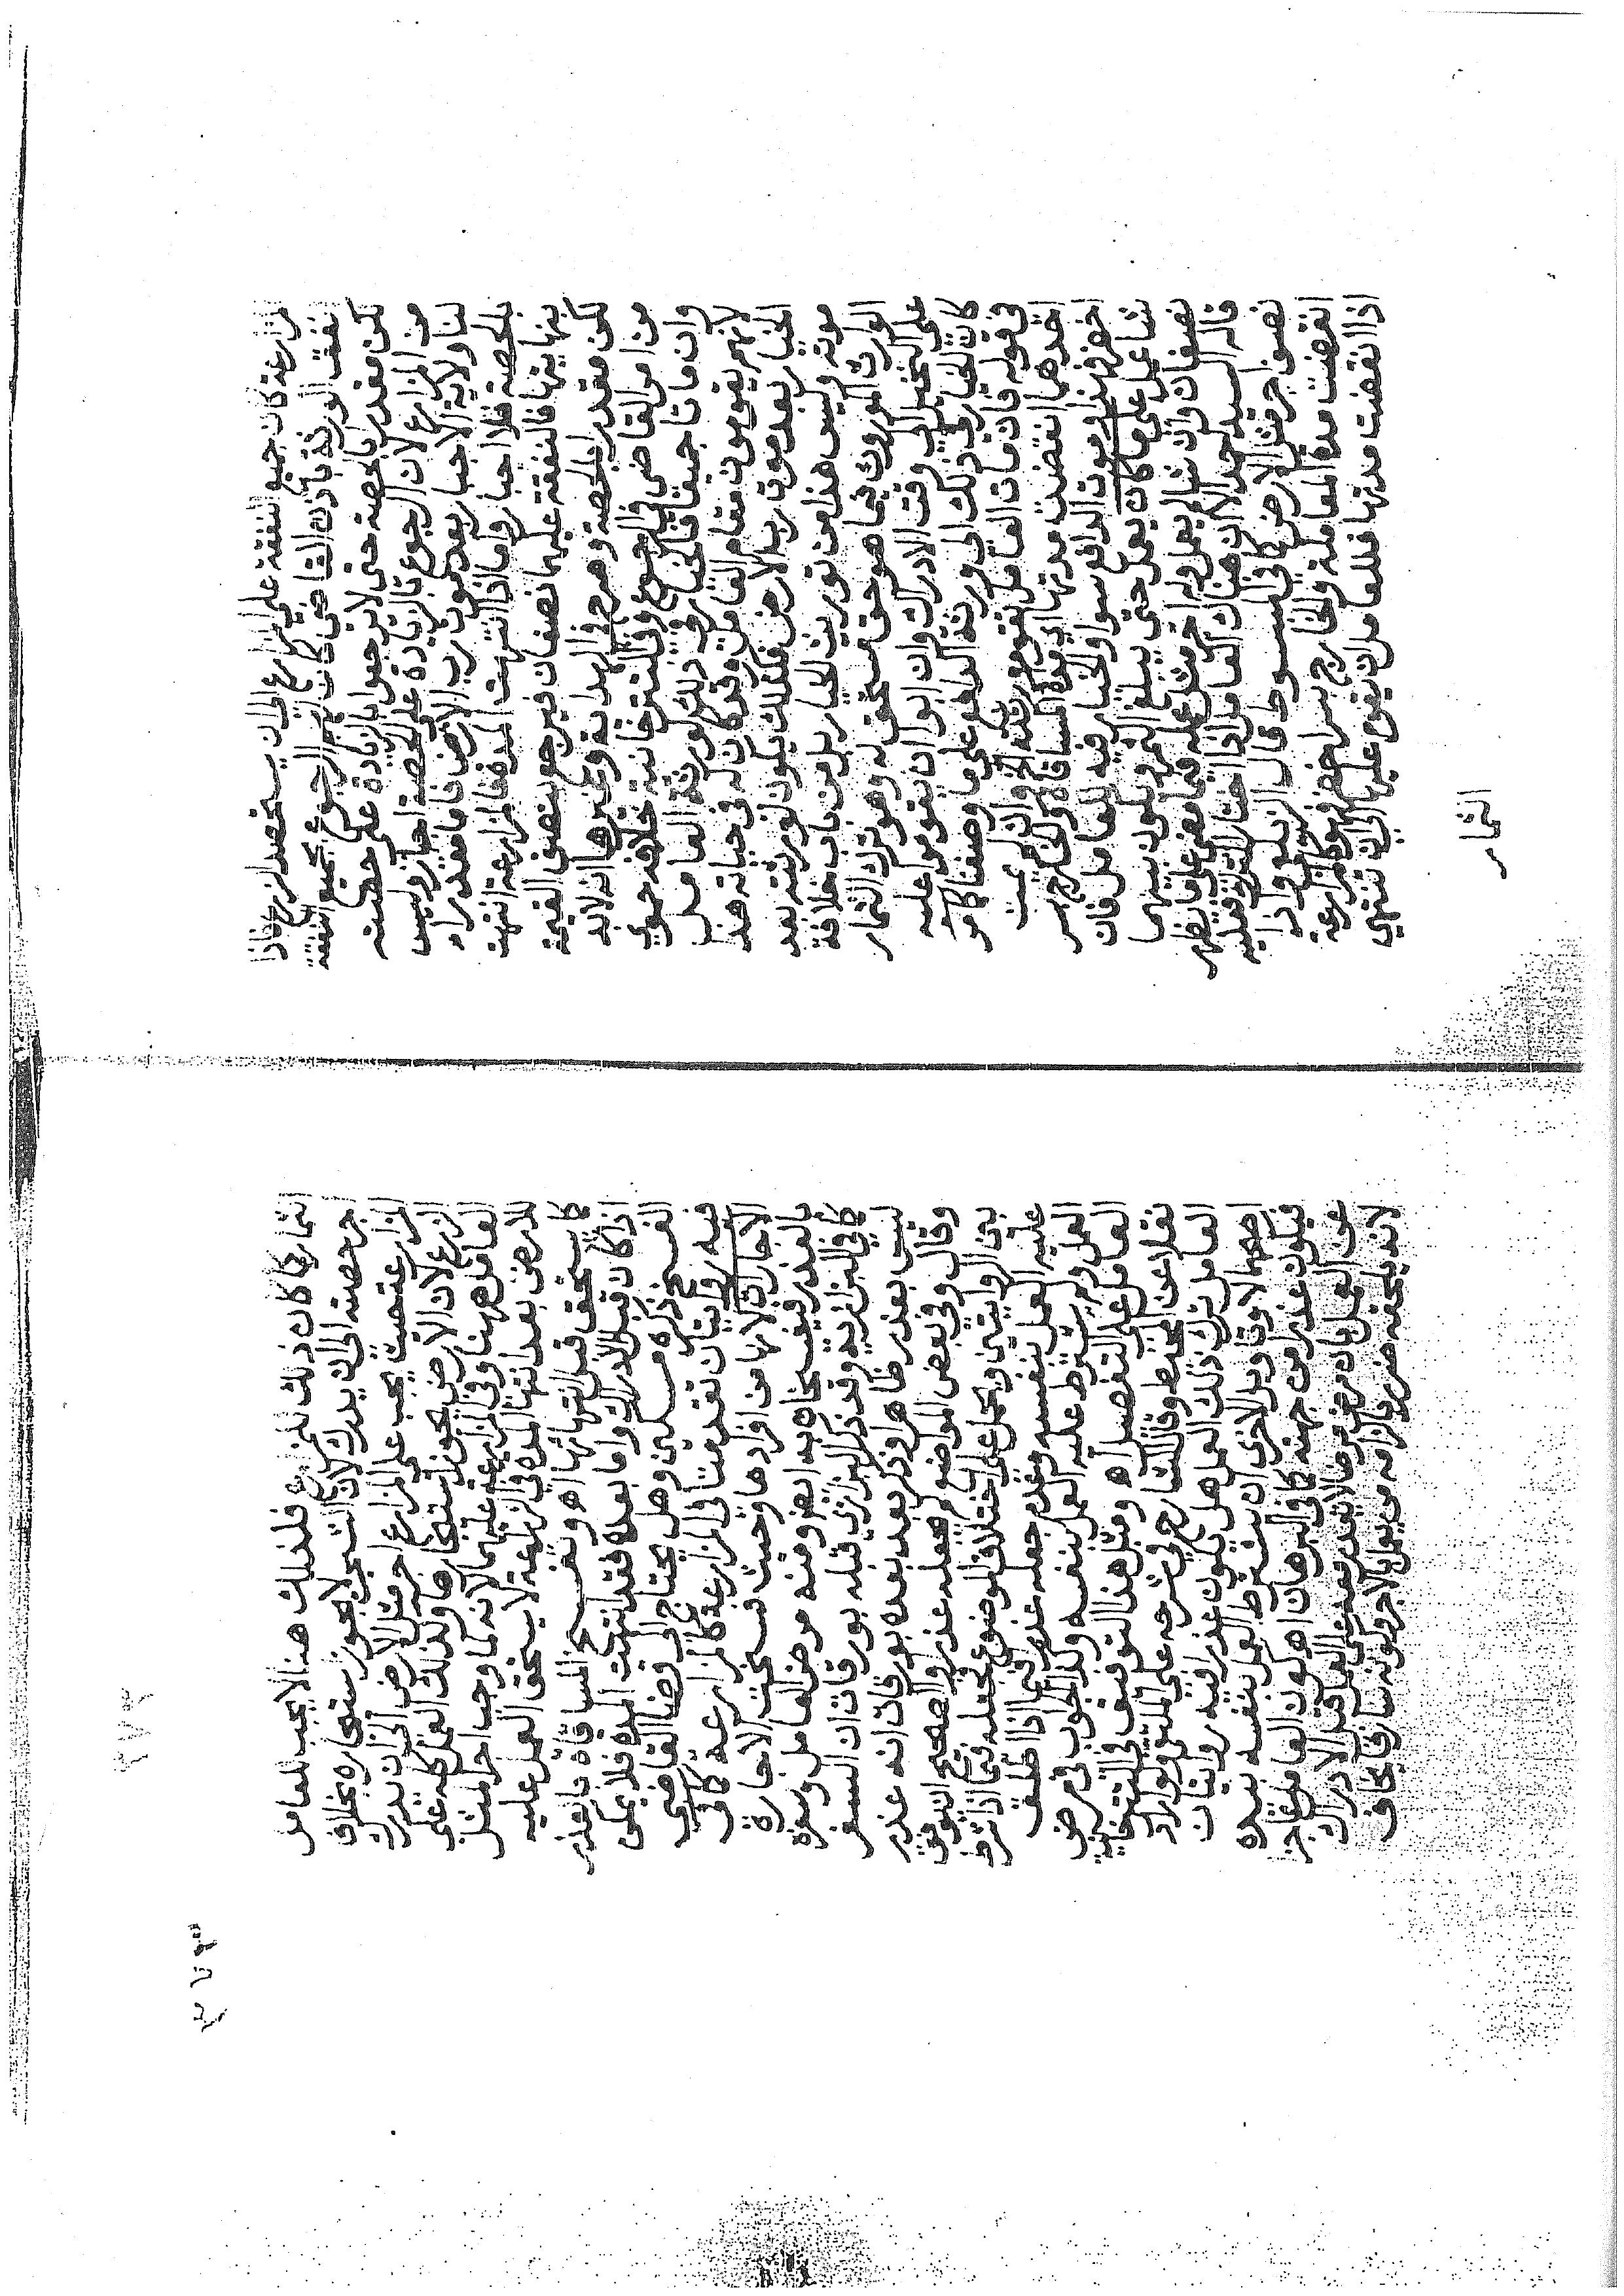 المزارعة كان جميع النفقة على المزارع الى ان يستحصد الزرع فاذا
انفقت الورثة باذن القاضي كان لهم الرجوع بجميع النفقة
لكن مقدرا بالحصة حتى لا يرجعوا بالزيادة على حصته
من المزارع لان الرجوع بالزيادة على الحصة اجبار وليس
لنا ولاية الاجبار بعد موت رب الارض فاما مقدرا
بالحصة فلا اجبار واما اذا انتهت المدة فالمزارعة انتهت
بنهايتها فالنفقة عليهما نصفان فيرجع بنصف القيمة
لكن مقدرا بالحصة وصرح في الهداية وغيرها انه لابد
من امر القاضي في الرجوع وفي التترخانية خلافه حموي
وان ماتا جميعا فالخيار في ذلك لورثة العامل
لانهم يقومون مقام العامل وقد كان له في حياته هذا
الخيار بعد موت رب الارض فكذلك يكون لورثته بعد
موته وليس هذا من توريث الخيار بل من باب خلافة
الوارث المورث فيما هو حق مستحق له وهو ترك الثمار
على النخيل الى وقت الادراك وان ابوا ان يقوموا عليه
كان الخيار في ذلك الى ورثة الدافع على ما وصفنا كما مر
في قوله فان مات العامل تقوم ورثته الخ وان لم يمت
احدهما انقضت مدتها اي مدة المساقاة والخارج بسر
اخضر فهذا وموت الدافع سوا والخيار فيه للعامل فان
شا عمل على ما كان يعمل حتى يبلغ الثمر ويكون بينهما
نصفان وان شا لم يعمل وله اجر مثل عمله فيما مضى على ما يظهر
قاله السيد احمد الا ان هناك العامل اذا اختار الترك فعليه
نصف اجر مثل الارض كما في المبسوط قال الزيلعي واذا
انقضت مدة المعاملة والخارج بسر اخضر فهو كالمزارعة
اذا انقضت مدتها فللعامل ان يقوم عليها الى ان تنتهي
الثمار
الثمار كما كان ذلك للمزارع فلذلك هنا لا يجب للعامل
جر حصته الى ان يدرك لان الشجر لا يجوز استئجاره بخلاف
المزارعة حيث يجب على المزارع اجر مثل الارض الى ان يدرك
الزرع لان الارض يجوز استئجارها وكذلك العمل كله على
العامل ههنا وفي المزارعة عليهما لانه لما وجب اجر مثل
الارض بعد انتها المدة في المزارعة لا يستحق العمل عليه
كما يستحق قبل انتهائها اهـ وتفسخ المساقاة بالعذر
اذا كان قبل الادراك واما بعده فقد انتهت المدة فلا يمكن
الفسخ ذكره مسكين وهل يحتاج الى قضا القاضي
فيه روايتان تقدمتا في المزارعة كالمزارعة كما في
الاجارات لانها من افرادها وحيث فسخت الاجارة
بالعذر فيفسخان به ايض ومنه مرض العامل وسفره
كما في البزازية وقد ذكر البزازي قبله بورقات ان السفر
ليس بعذر ظاهرا وذكر بعد بعده بورقات انه عذر
وقال وفي بعض المواضع لم يجعله عذرا والصحيح التوفيق
بين الروايتين ويحمل على اختلاف الموضوع بجعله فيما اذا شرط
عليه العمل بنفسه وعدم جعله عذرا فيما اذا اطلق
العمل ولم يشترط عليه العمل بنفسه وكذا الجواب في مرض
العامل على التفصيل اهـ ومثل هذا التوفيق في التتخانية
نقلا عن المحيط وقال الشارح في شرحه على الملتقى ولو اراد
العامل ترك ذلك العمل هل يكون عذرا فيه روايتان
اصحهما لا وتاويل الاخرى ان يشترط العمل بنفسه بيده
فيكون عذرا من جهته كما في البرهان اهـ كون العامل عاجز
عن العمل بان مرض مرضا لا يقدر معه على العمل قبل الادراك
لانه يلحقه ضرر بالزامه من يعمل بالاجر وكونه سارقا يخاف